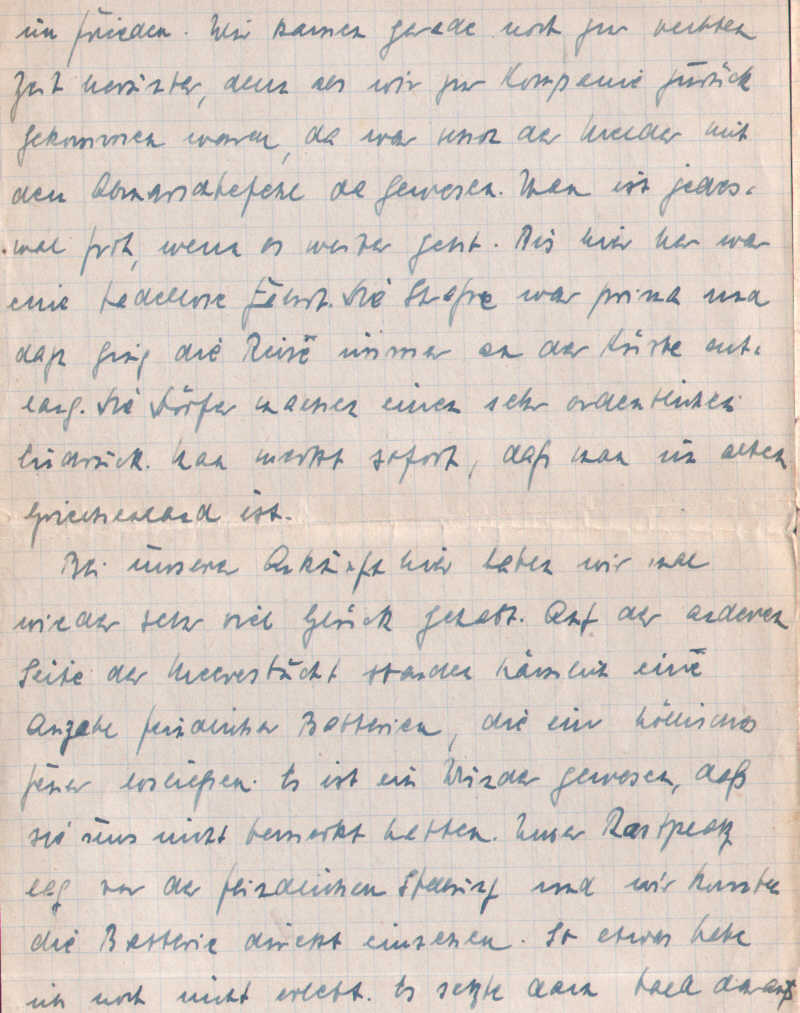 im Frieden. Wir kamen gerade noch zur rechten
Zeit herunter, denn als wir zur Kompanie zurück
gekommen waren, da war schon der Melder mit
dem Abmarschbefehl da gewesen. Man ist jedes-
mal froh, wenn es weiter geht. Bis hier her war
eine tadellose Fahrt. Die Straße war prima und
dazu ging die Reise immer an der Küste ent-
lang. Die Dörfer machen einen sehr ordentlichen
Eindruck. Man merkt sofort, daß man im alten
Griechenland ist.
Bei unserer Ankunft hier haben wir mal
wieder sehr viel Glück gehabt. Auf der anderen
Seite der Meeresbucht standen nämlich eine
Anzahl feindlicher Batterien, die ein höllisches
Feuer losließen. Es ist ein Wunder gewesen, daß
sie uns nicht bemerkt hatten. Unser Rastplatz
lag vor der feindlichen Stellung und wir konnten
die Batterie direkt einsehen. So etwas habe
ich noch nicht erlebt. Es setzte dann bald darauf